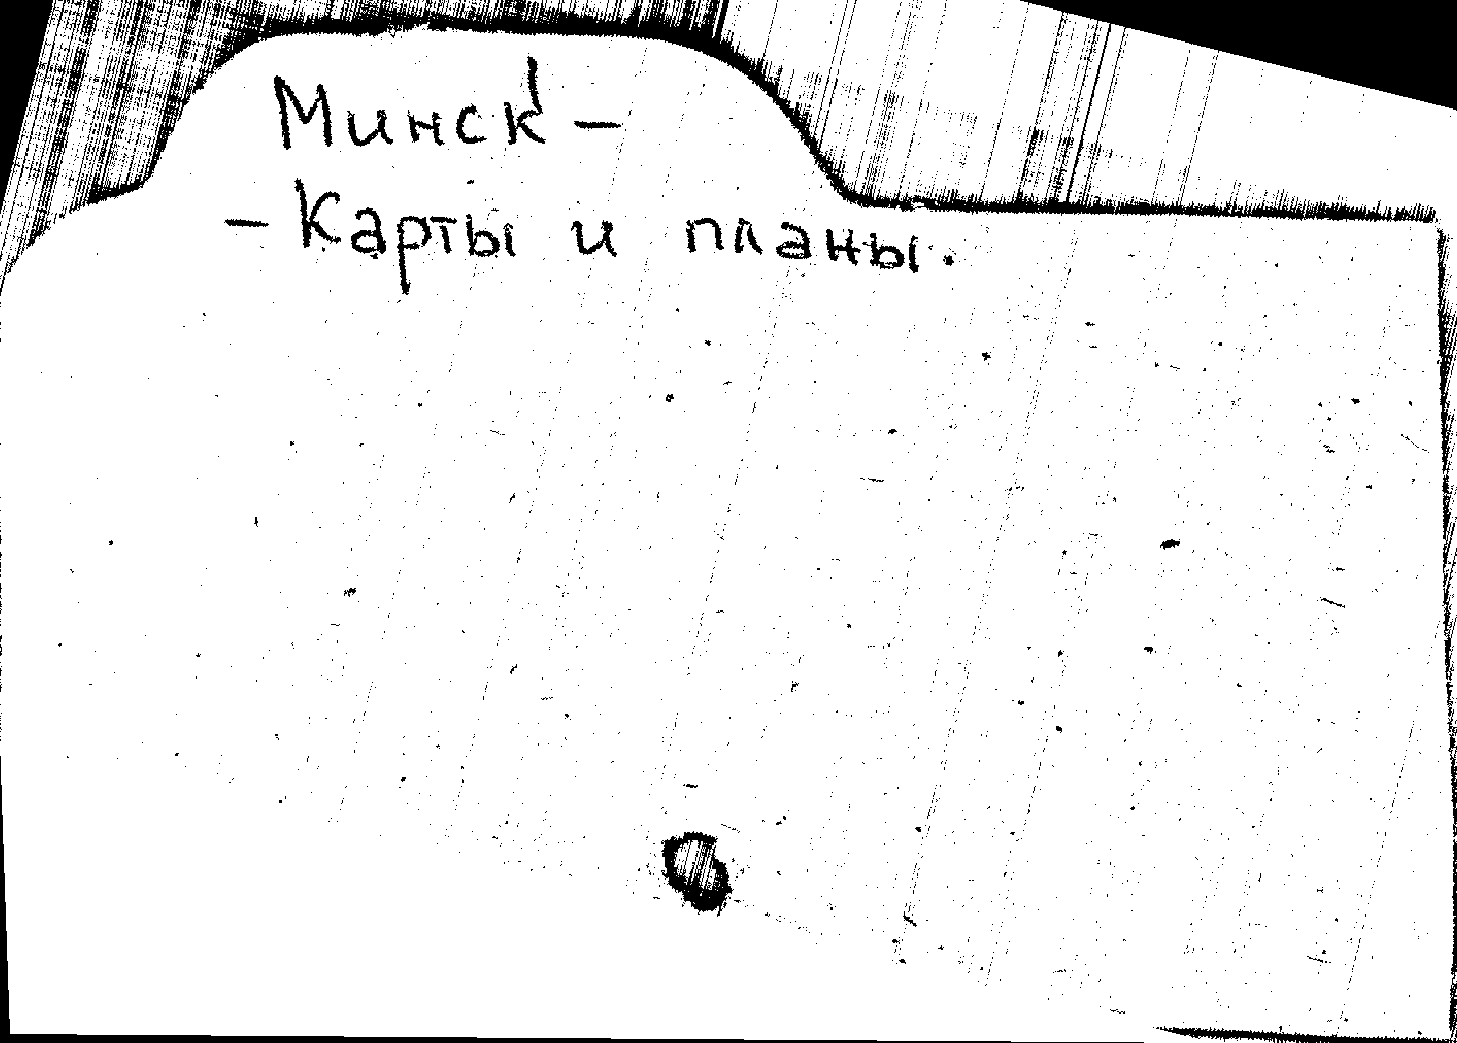 Минск –
– Карты и планы.